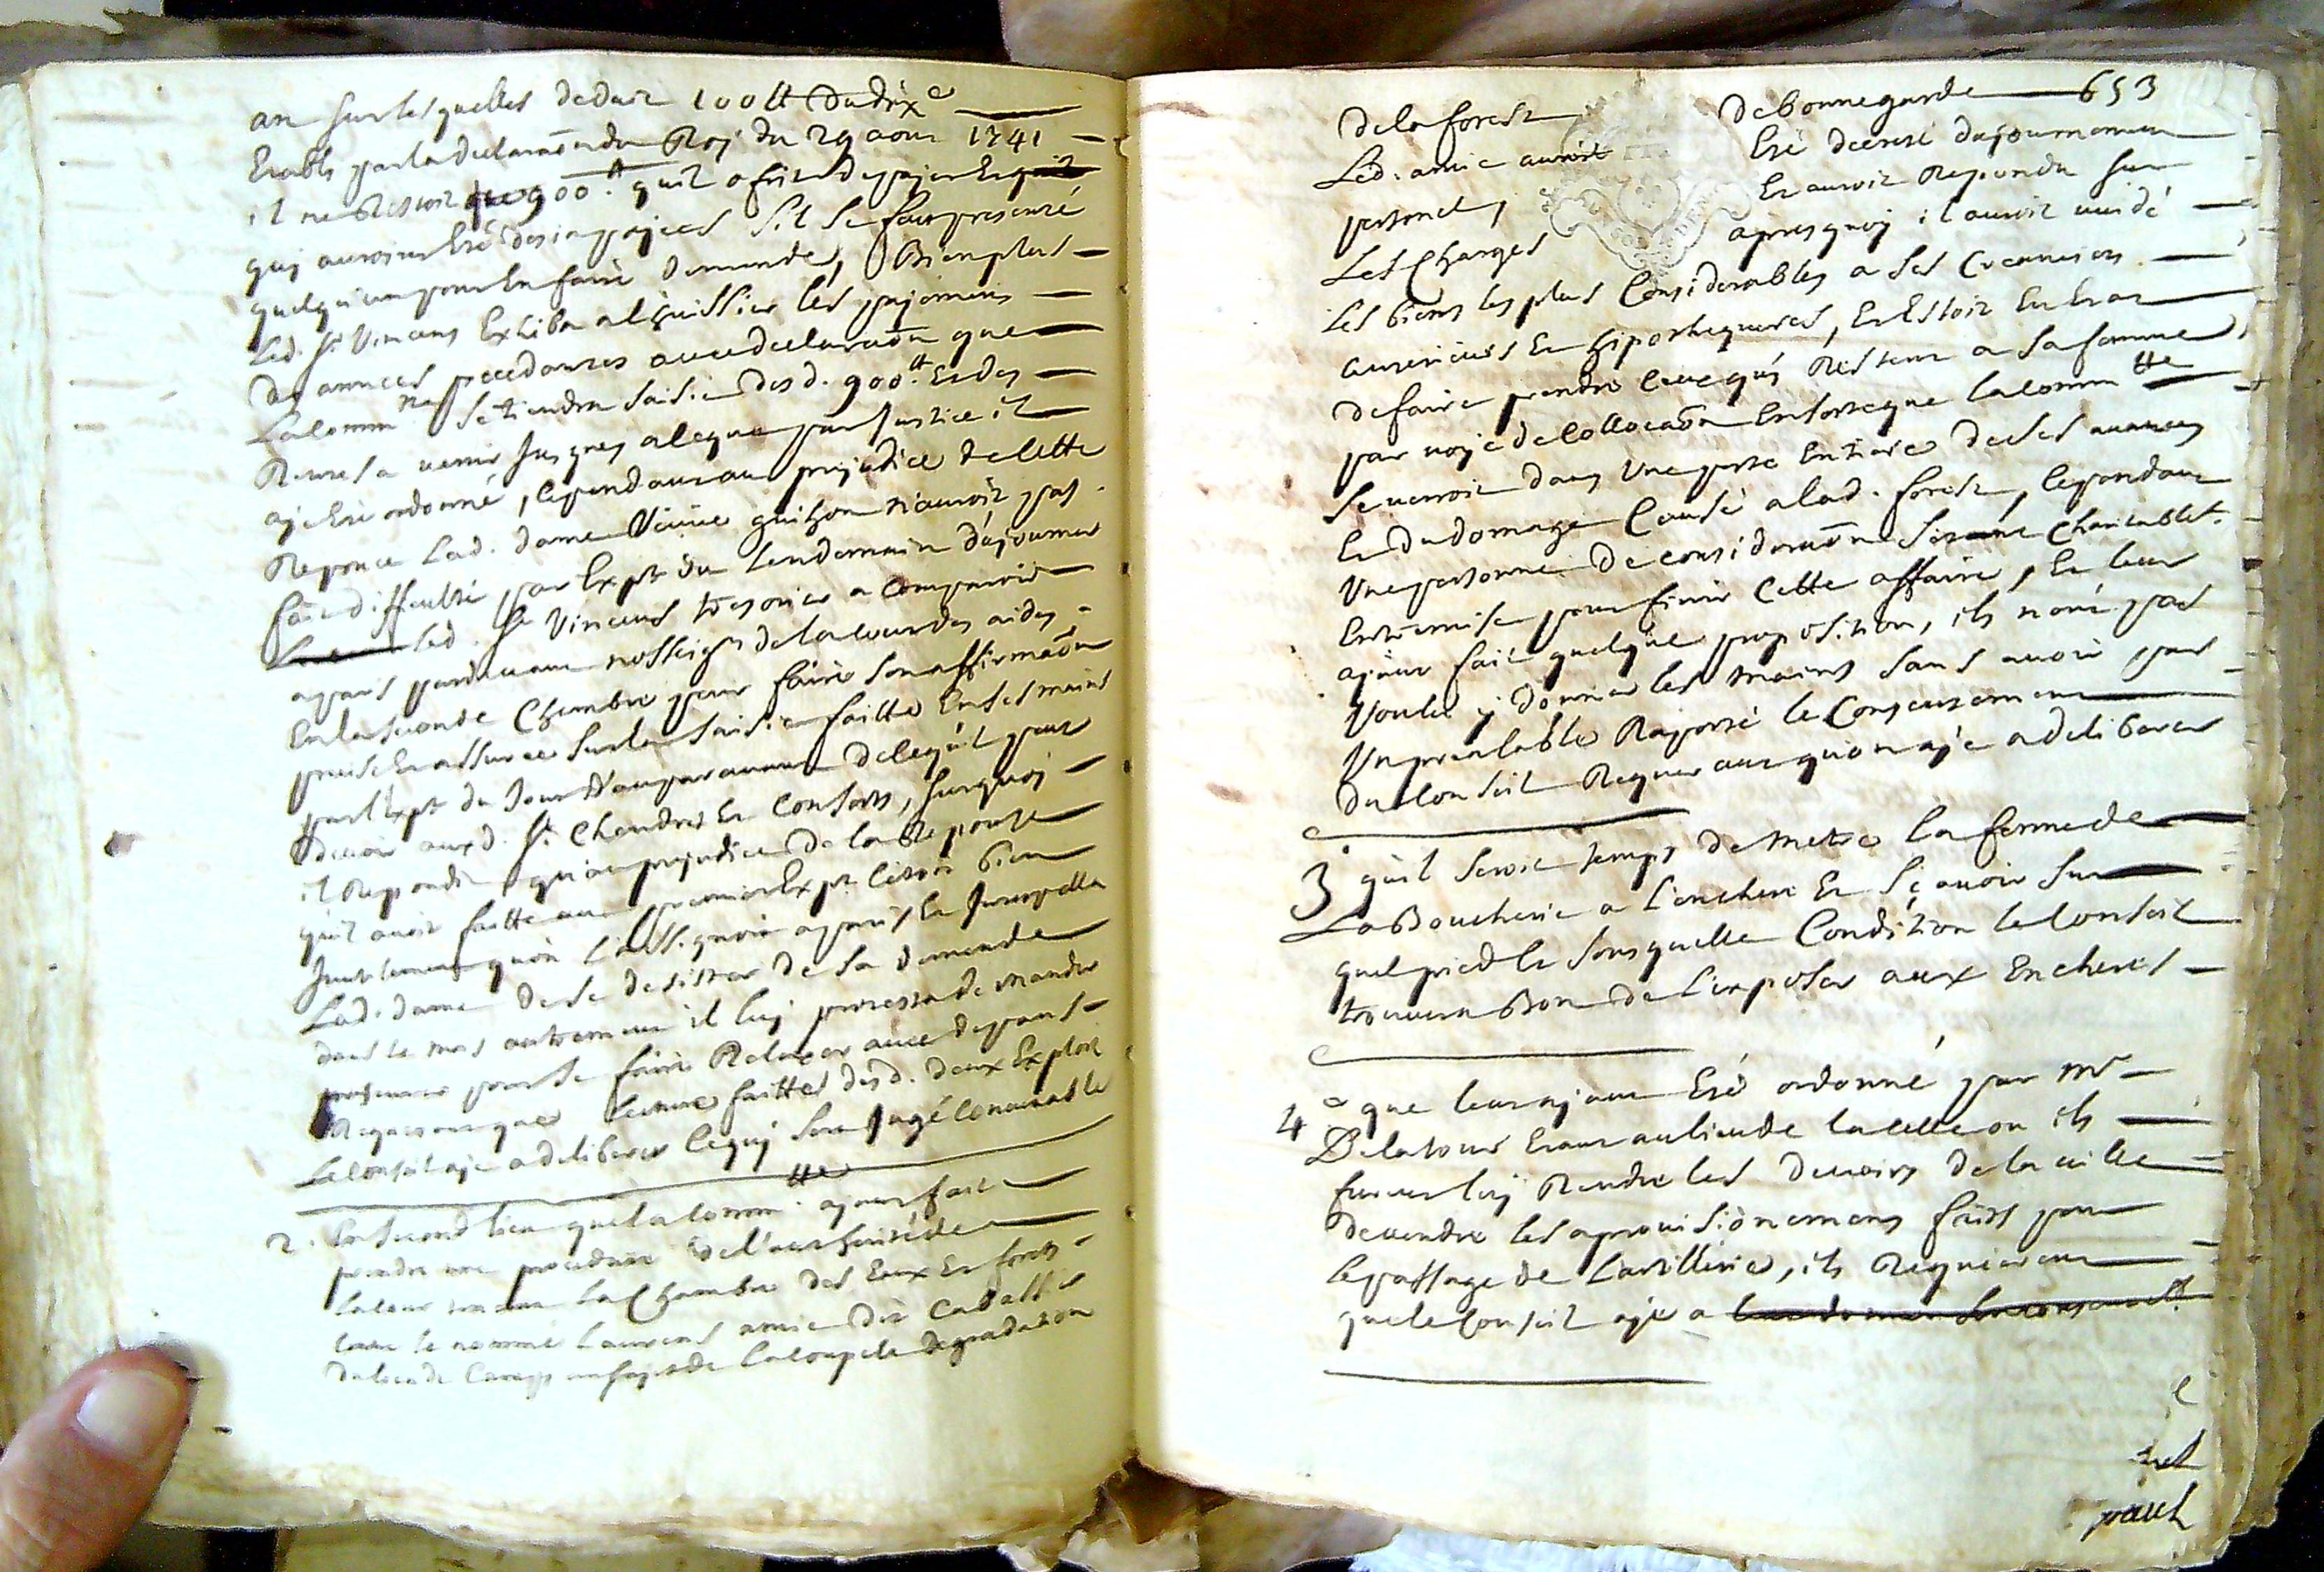 an sur lesquelles deduit 100 tt du dix.e
Etably par la declaraõn du Roy du 29 aout 1741
il ne Restoit que 900.tt quil ofrit de payer Et quil
quj auroint Eté desja payées sil se fut presenté
quelqu'un pour En faire demande, Bien plus
Led. Sr Vincens Exhiba al huissier les payemens
des années precedantes avec declaraõn que
La Comm.té se tiendra saisie des d. 900.tt Et des
Rentes a venir Jusques a ce que par Justice il
aye Eté ordonné, cependant au prejudice de cette
Reponce Lad. dame Veuve guihon n'auroit pas
fait difficulté, par Expt. du lendemain d'ajourner
led. Sr Vincens tresorier a comparoir
apres pardevant nosseigrs de la cour des aides
En la seconde Chambre pour faire son affirmaõn
precise Et assurée sur la saisie faitte En ses mains
par Expt du Jour d'auparavant de ce quil peut
devoir aux d. Sr. Chendret Et Consorts, surquoj
il Repondit qu'au prejudice de la Réponse
quil avoit faitte au premier Expt. Cetoit bien
Inutilement quon l'assignoit apres Et Interpella
Lad. dame de se desister de sa demande
dans le mas autrement il luj protesta de mander
procureur pour se faire Relaxer avec depans
Requerant que lecture faittes des d. deux Exploit
Le conseil aye a deliberer ce quj sera Jugé Convenable
2. En second lieu que la Comm.tté ayant fait
prendre une procedure de l'authorité de
la cour
la Chambre des Eaux Et forets
contre le nommé Laurens amic dit Cadasse
du lieu de
au sujet de la coupe Et degradation
de la forest de bonnegarde 653
Led. amic auroit Eté decreté dajournement
personel, Et auroit Repondu sur
Les Charges apres quoj il auroit vuidé
Les biens les plus Considerables a ses Creanciers
anterieurs En hipothequeres, Et Estoit En Etat
de faire prendre ceux qui Restent a sa femme
par voye de Collocaõn En sorte que la Comm.tté
se verroit dans Une perte Entiere de ses avances
Et du domage Causé a lad. forest, cependant
Une personne de consideraõn s'etant charitablet.
Entremise pour finir Cette affaire, Et leur
ayant fait quelque proposition, ils nont pas
voulu y donner les mains sans avoir par
Un prealable Raporté le Consentement
du Conseil Requerant quon aye a deliberer
3° quil seroit temps de metre la ferme de
La Boucherie a l'enchere Et sçavoir sur
quel pied Et sous quelle Condition le Conseil
trouvera Bon de l'exposer aux Encheres
4° que leur ayant Eté ordonné par Mr
De la tour Etant au lieu de la celle ou ils
furent luj Rendre les devoirs de la ville
de vendre les aprovisionemens faits pour
le passage de l'artillerie, ils Requierent
que le Conseil aye a